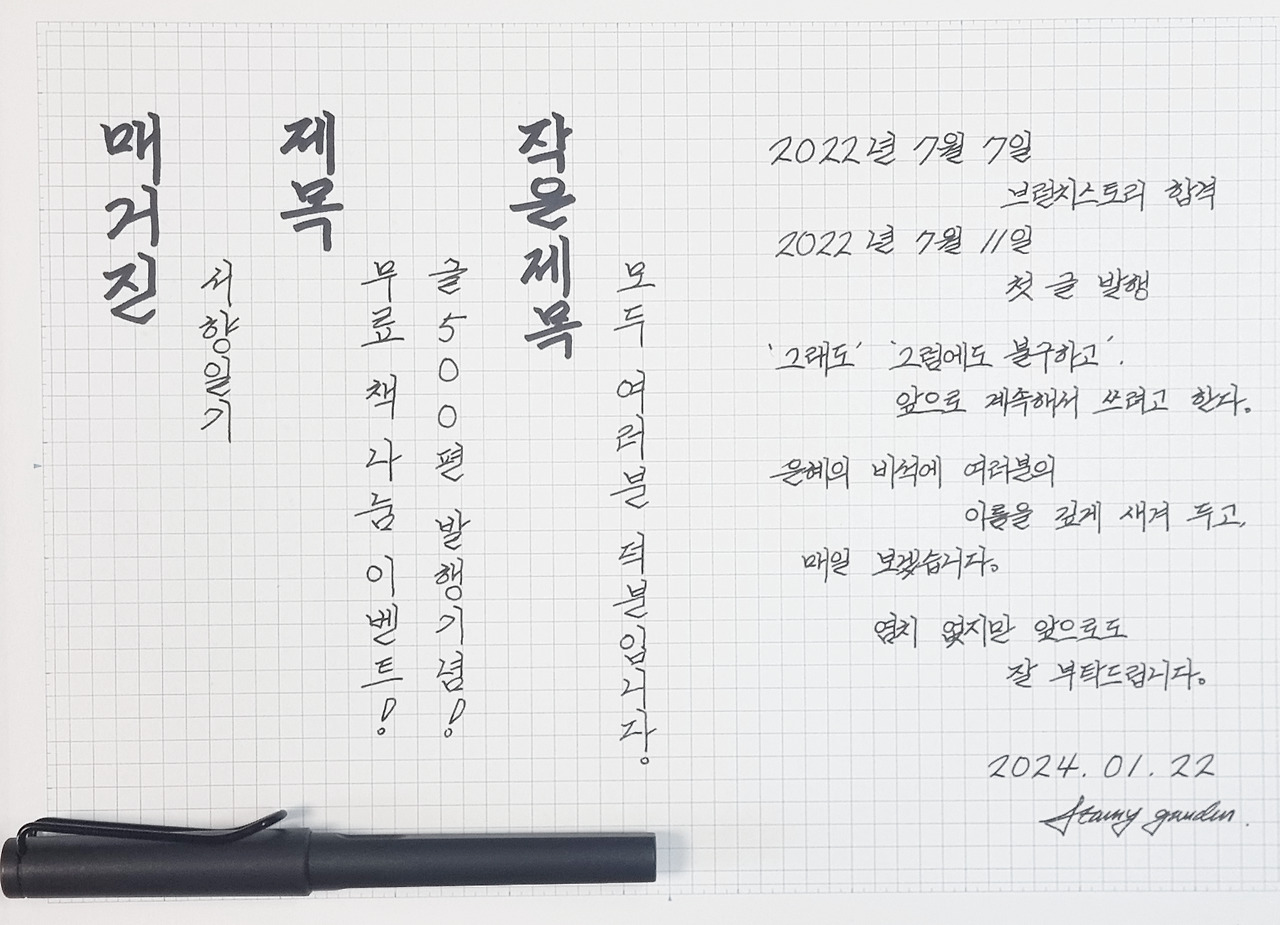 매거진
서향일기
제목
글 500편 발행기념!
무료 책 나눔 이벤트!
작은제목
모두 여러분 덕분입니다.
2022년 7월 7일
브런치스토리 합격
2022년 7월 11일
첫 글 발행
'그래도' '그럼에도 불구하고'.
앞으로 계속해서 쓰려고 한다.
은혜의 비석에 여러분의
이름을 깊게 새겨 두고,
매일 보겠습니다.
염치 없지만 앞으로도
잘 부탁드립니다.
2024. 01. 22